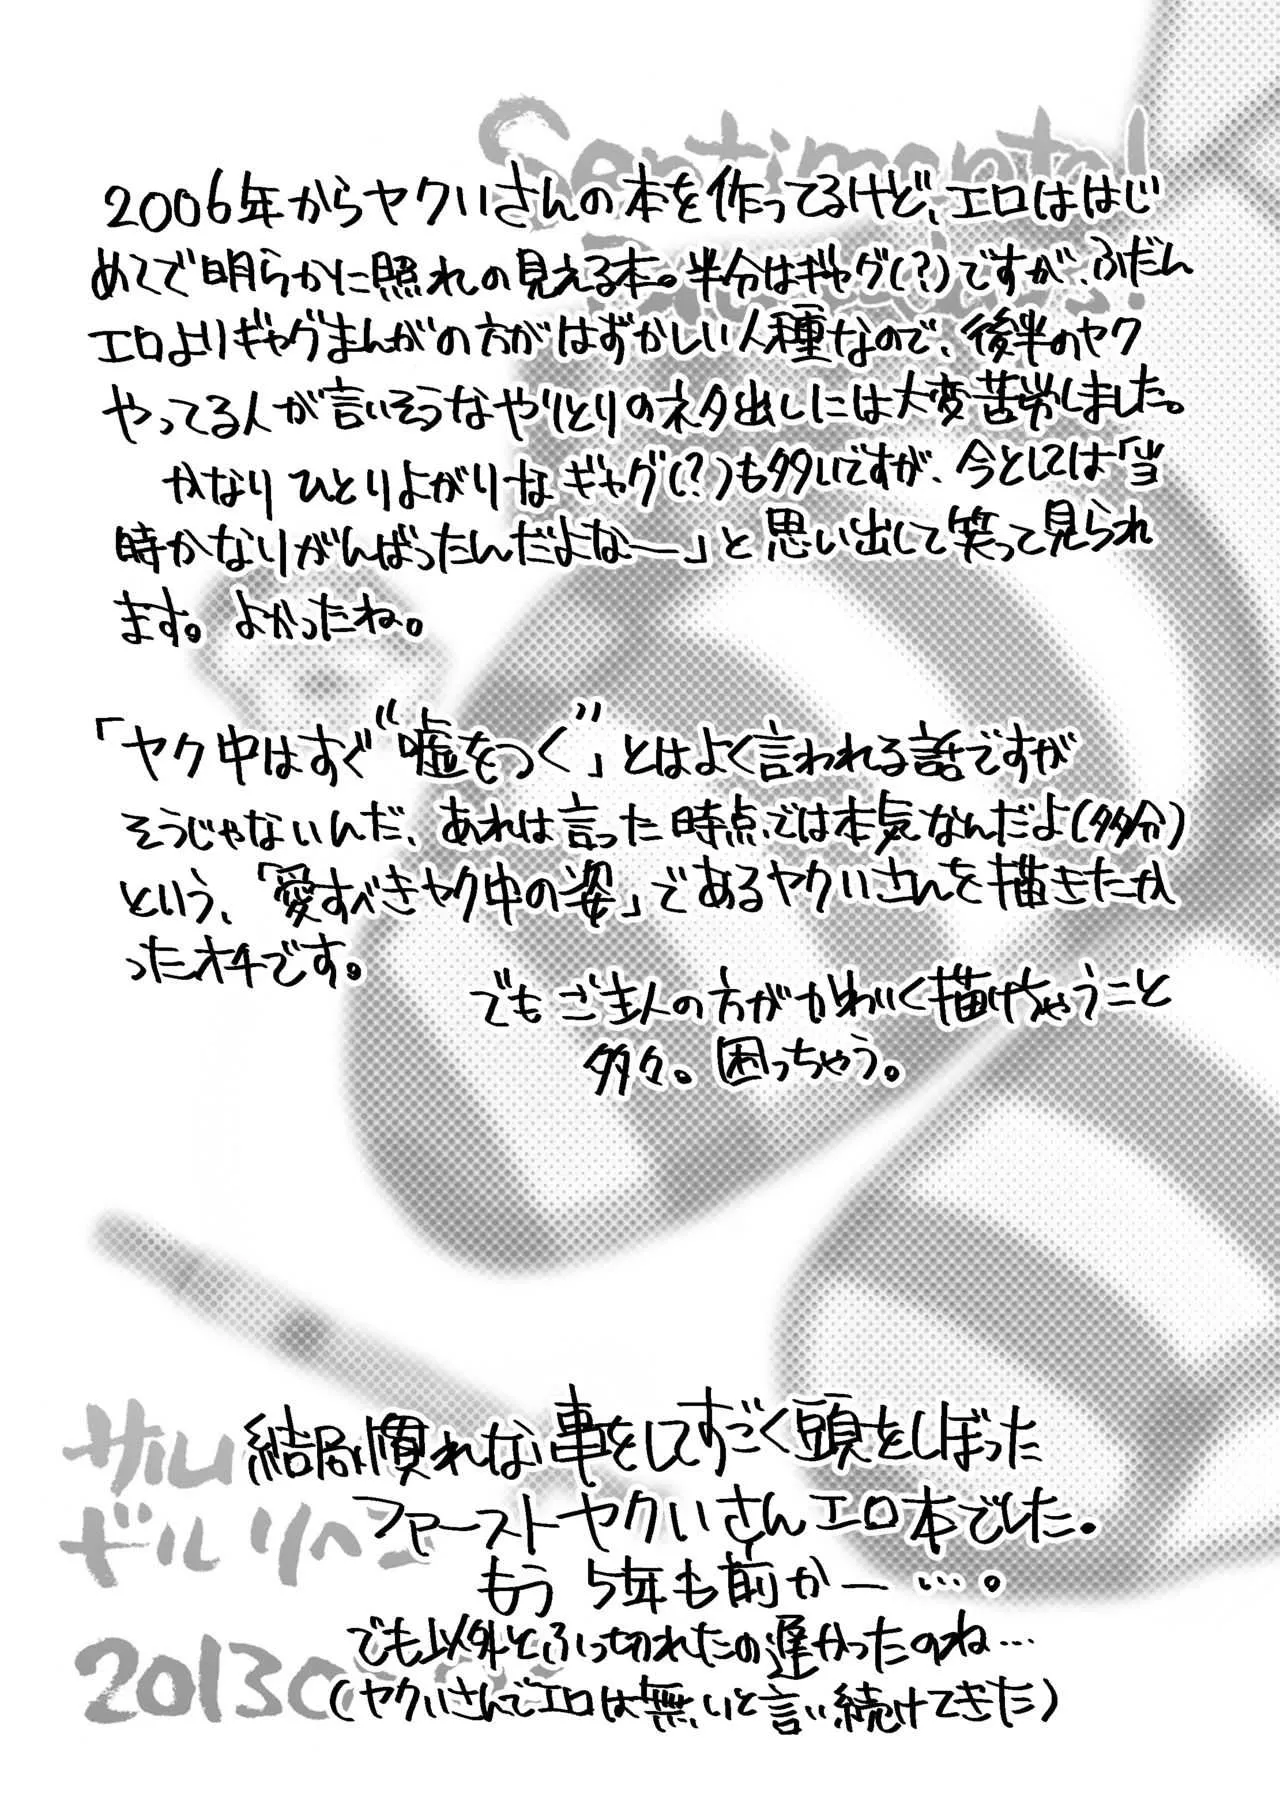 Sentimental
2006年からヤクいさんの本を作ってるけど、エロははじ
めてで明らかに照れの見える本。半分はギャグ(?)ですが、ふだん
エロよりギャグまんがの方がはずかしい人種なので、後半のヤク
やってる人が言いそうなやりとりのネタ出しには大変苦労しました。
かなりひとりよがりなギャグ(?)も多いですが、今としては「当
時かなりがんばったんだよなー」と思い出して笑って見られ
ます。よかったね。
「ヤク中はすぐ“嘘をつく”」とはよく言われる話ですが
そうじゃないんだ、あれは言った時点では本気なんだよ(多分)
という、「愛すべきヤク中の姿」であるヤクいさんを描きたか
ったオチです。
でもご主人の方がかわいく描けちゃうこと
多々。困っちゃう。
サルム
結局慣れない事をしてすごく頭をしぼった
ドルリヘン
ファーストヤクいさんエロ本でした。
もう5年も前かー…。
でも以外とふっ切れたの遅かったのね…
2013
(ヤクいさんでエロは無いと言い続けてきた)